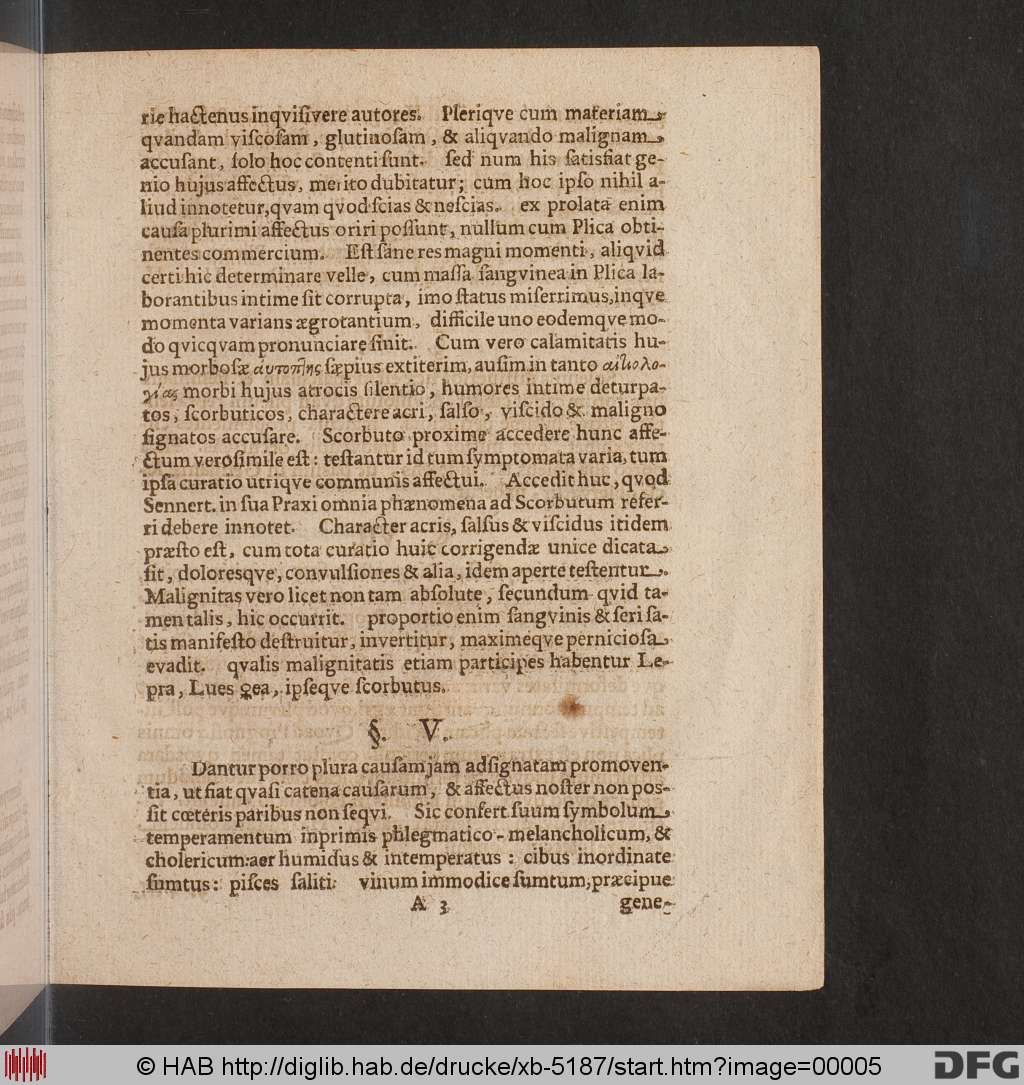 rie hactenus inqvisivere autores. Plerique cum materiam
qvandam viscosam, glutinosam, & aliqvando malignam,
accusant, solo hoc contenti sunt. sed num his satisfiat ge-
nio hujus affectus, merito dubitatur; cum hoc ipso nihil a-
liud innotetur, qvam qvod scias & nescias. ex prolata enim
causa plurimi affectus oriri possunt, nullum cum Plica obti-
nentes commercium. Est sane res magni momenti, aliqvid
certi hic determinare velle, cum massa sangvinea in Plica la-
borantibus intime sit corrupta, imo status miserrimus, inqve
momenta varians ægrotantium, difficile uno eodemqve mo-
do qvicqvam pronunciare sinit. Cum vero calamitatis hu-
jus morbosæ ἀυτοπτης sæpius extiterim, ausim in tanto αἰτιολο-
γίας morbi hujus atrocis silentio, humores intime deturpa-
tos, scorbuticos, charactere acri, salso, viscido & maligno
signatos accusare. Scorbuto proxime accedere hunc affe-
ctum verosimile est: testantur id tum symptomata varia, tum
ipsa curatio utriqve communis affectui. Accedit huc, qvod
Sennert. in sua Praxi omnia phænomena ad Scorbutum refer-
ri debere innotet. Character acris, salsus & viscidus itidem
præsto est, cum tota curatio huic corrigendæ unice dicata
sit, doloresqve, convulsiones & alia, idem aperte testentur.
Malignitas vero licet non tam absolute, secundum qvid ta-
men talis, hic occurrit. proportio enim sangvinis & seri sa-
tis manifesto destruitur, invertitur, maximeqve perniciosa
evadit. qvalis malignitatis etiam participes habentur Le-
pra, Lues ♀ea, ipseqve scorbutus.
§. V.
Dantur porro plura causam jam adsignatam promoven-
tia, ut fiat qvasi catena causarum, & affectus noster non pos-
sit cœteris paribus non seqvi. Sic confert suum symbolum
temperamentum inprimis phlegmatico-melancholicum, &
cholericum: aer humidus & intemperatus: cibus inordinate
sumtus: pisces saliti: vinum immodice sumtum, præcipue
A 3 gene-
© HAB http://diglib.hab.de/drucke/xb-5187/start.htm?image=00005 DFG